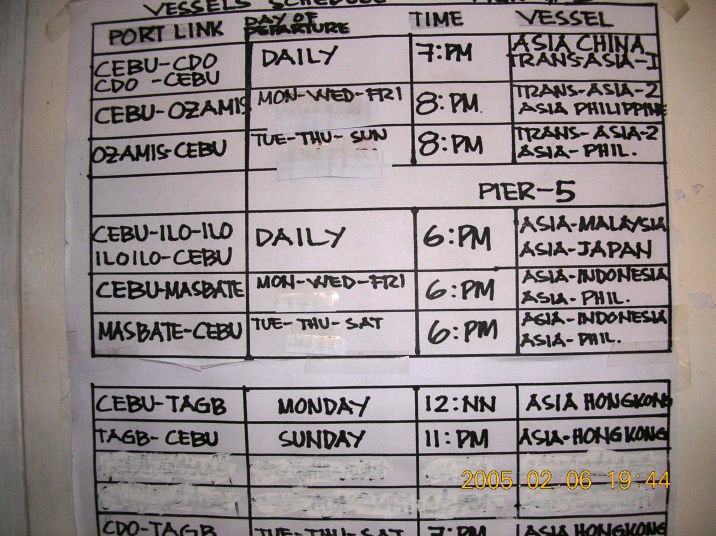 VESSELS SCHEDULE
PORT LINK DAY OF DEPARTURE TIME VESSEL
CEBU-CDO DAILY 7:PM ASIA CHINA
CDO-CEBU TRANS-ASIA-I
CEBU-OZAMIS MON-WED-FRI 8:PM TRANS-ASIA-2
ASIA PHILIPPINE
OZAMIS-CEBU TUE-THU-SUN 8:PM TRANS-ASIA-2
ASIA-PHIL.
PIER-5
CEBU-ILO-ILO DAILY 6:PM ASIA-MALAYSIA
ILOILO-CEBU ASIA-JAPAN
CEBU-MASBATE MON-WED-FRI 6:PM ASIA-INDONESIA
ASIA-PHIL.
MASBATE-CEBU TUE-THU-SAT 6:PM ASIA-INDONESIA
ASIA-PHIL.
CEBU-TAGB MONDAY 12:NN ASIA HONGKONG
TAGB-CEBU SUNDAY 11:PM ASIA-HONGKONG
2005 02 06 19:44
CDO-TAGB TUE-THU-SAT 7:PM ASIA HONGKONG